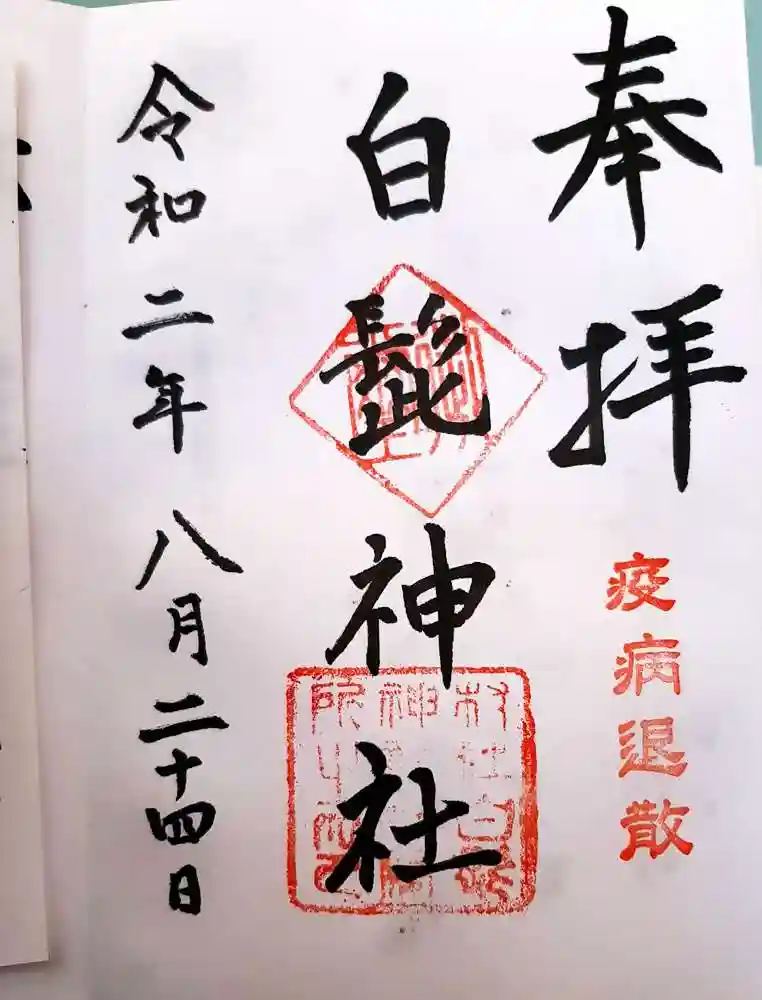 奉拝
疫病退散
白髭神社
令和二年八月二十四日